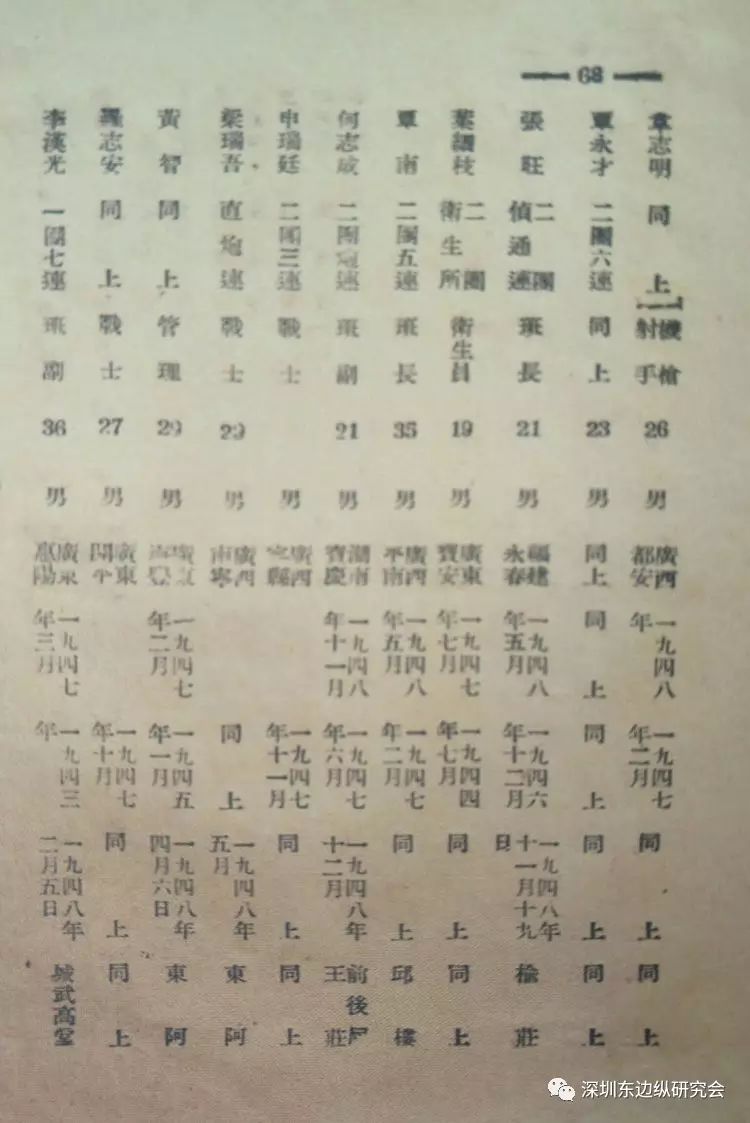 68
韋志明 同上 機槍射手 26 男 廣西都安 一九四八年 一九四七年二月 同上 同上
覃永才 二團六連 同上 23 男 同上 同上 同上 同上 同上
張旺 二團偵通連 班長 21 男 福建永春 一九四八年五月 一九四六年十二月 一九四八年十一月十九日 榆莊
葉枝 二團衛生所 衛生員 19 男 廣東寶安 一九四七年七月 一九四四年七月 同上 同上
覃南 二團五連 班長 35 男 廣西平南 一九四八年五月 一九四七年二月 同上 邱樓
何志成 二團連 班副 21 男 湖南寶慶 一九四八年十一月 一九四七年六月 一九四八年十二月 前後王莊
申瑞廷 二團三連 戰士 男 廣西縣 一九四七年十一月 同上 同上
梁瑞吾 直炮連 戰士 29 男 廣西南寧 同上 一九四八年五月 東阿
黃智 同上 管理 29 男 廣東 一九四七年二月 一九四五年一月 一九四八年四月六日 東阿
羅志安 同上 戰士 27 男 廣東開平 一九四七年十月 同上 同上
李漢光 一團七連 班副 36 男 廣東惠陽 一九四七年三月 一九四三年 一九四八年二月五日 城武高
深圳东边纵研究会